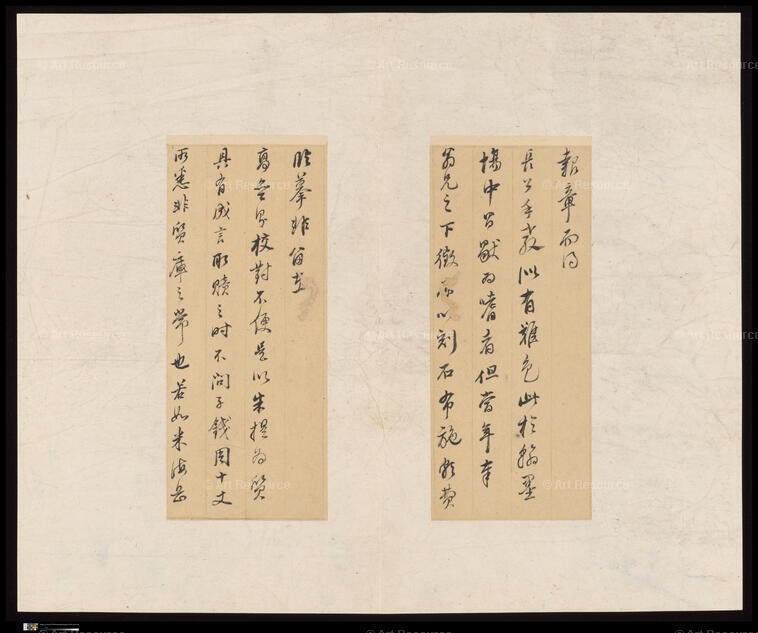 報章而得
長公手教似有難色此於翰墨
場中習獻為嗜者但當年奉
翁兄之下徵原以刻石布施頗費
臨摹非留真
齋無另校對不便是以朱提為質
具有成言取贖之時不問子錢周十丈
所悉非質庫之常也若如米海岳
© Art Resource
© Art Resource
© Art Resource
© Art Resource
© Art Resource
© Art Resource
© Art Resource
© Art Resource
© Art Resource
© Art Resource